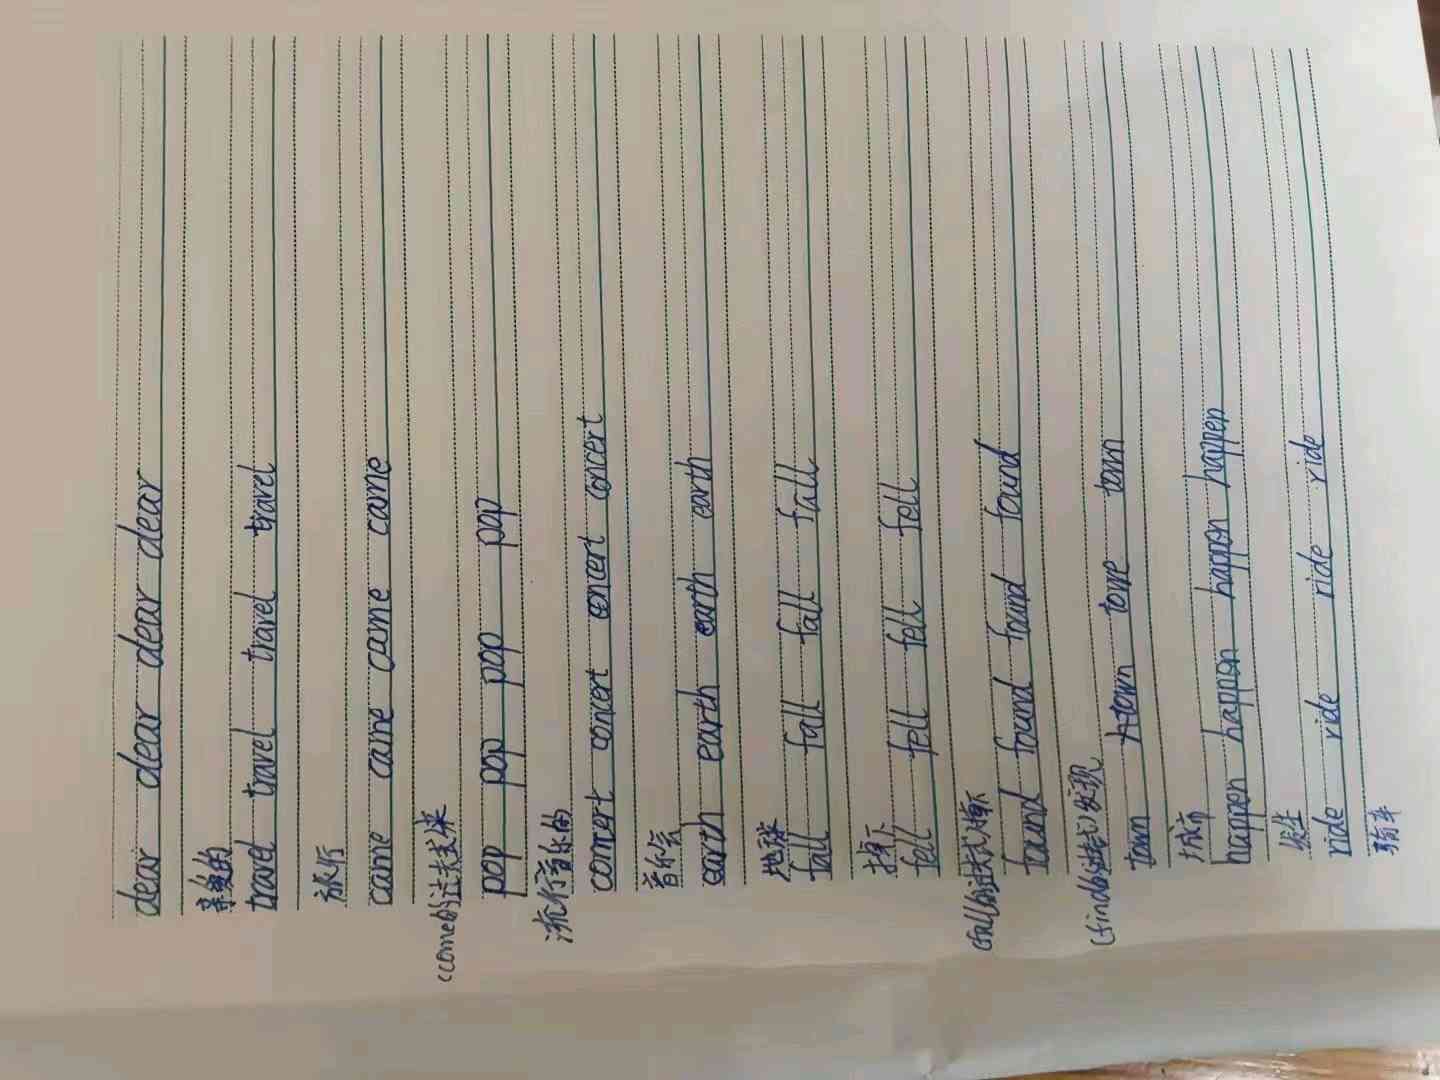 dear dear dear dear
亲爱的
travel travel travel travel
旅行
came came came came
(come的过去式)来
pop pop pop pop
流行音乐的
concert concert concert concert
音乐会
earth earth earth earth
地球
fall fall fall fall
掉下
fell fell fell fell
(fall的过去式)掉下
found found found found
(find的过去式)发现
town town town town
城市
happen happen happen happen
发生
ride ride ride ride
骑车